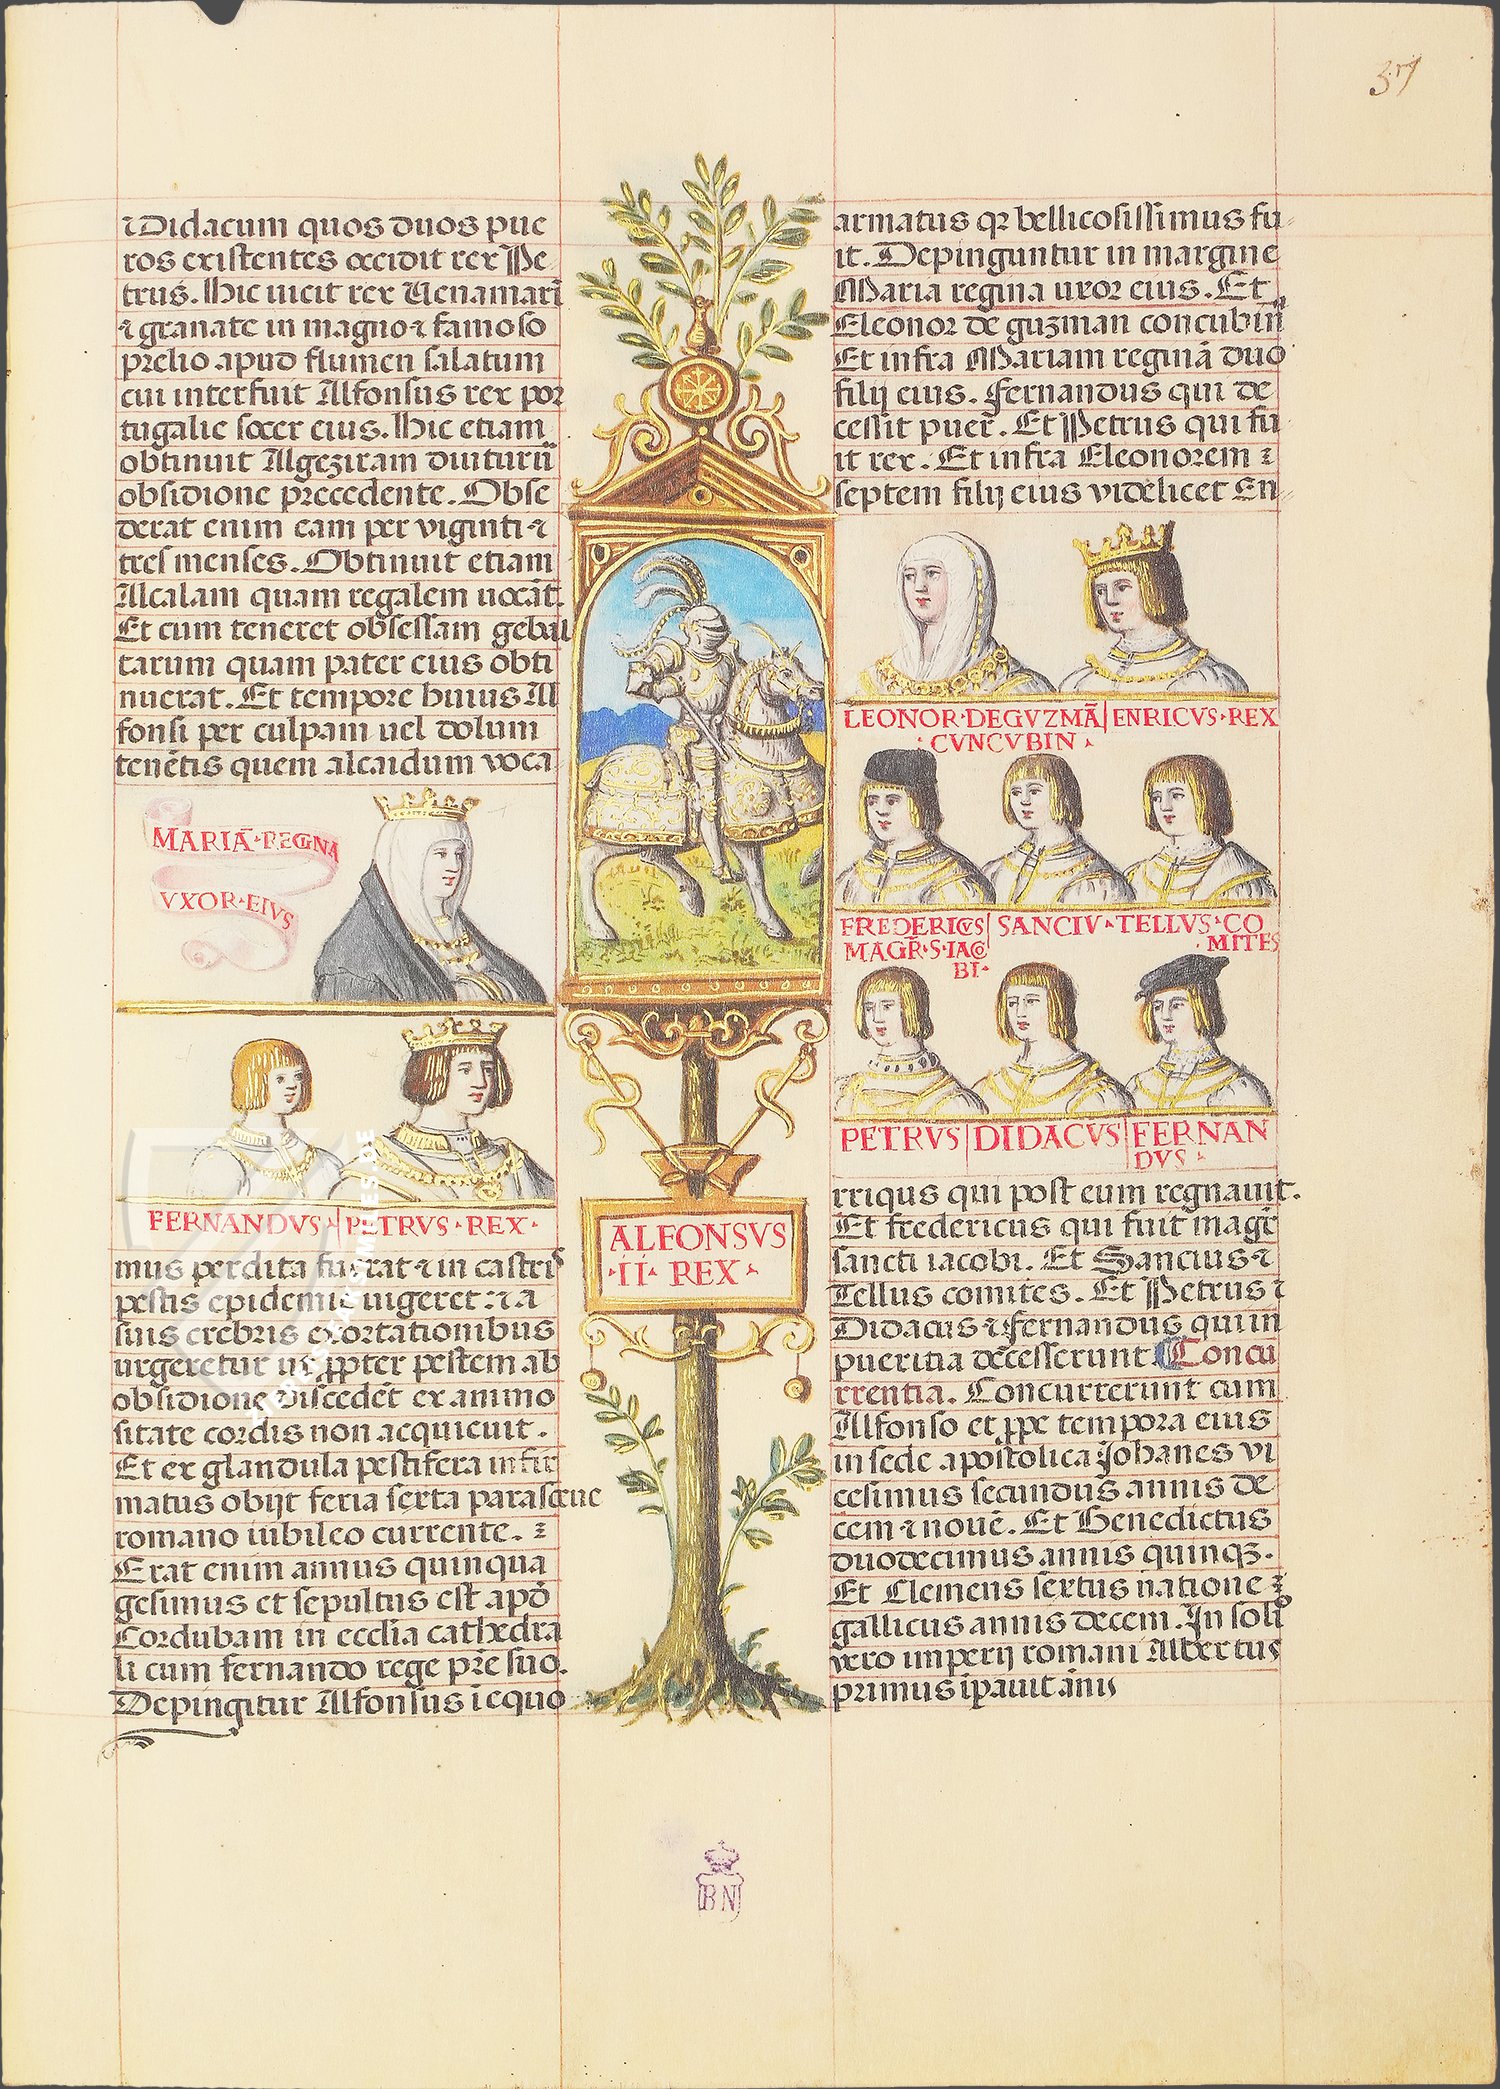 37
⁊ Didacum quos duos pue
ros existentes occidit rex Pe
trus. Hic uicit rex Uenamari
⁊ granate in magno ⁊ famoso
prelio apud flumen salatum
cui interfuit Alfonsus rex por
tugalie socer eius. Hic etiam
obtinuit Algeziram diuturn̄
obsidione precedente. Obse
derat enim eam per viginti ⁊
tres menses. Obtinuit etiam
Alcalam quam regalem uocāt.
Et cum teneret obsessam gebal
tarum quam pater eius obti
nuerat. Et tempore huius Al
fonsi per culpam uel dolum
tenētis quem alcaidum voca
MARIÃ · REGNA
VXOR · EIVS
FERNANDVS · | PETRVS · REX ·
mus perdita fuerat ⁊ in castris
pestis epidemie uigeret: ⁊ a
suis crebris exortationibus
urgeretur ut ꝓpter pestem ab
obsidione discederet ex animo
sitate cordis non acquieuit.
Et ex glandula pestifera infir
matus obijt feria sexta parasceue
romano iubileo currente.
Erat enim annus quinqua
gesimus et sepultus est apō
Cordubam in ecclīa cathedra
li cum fernando rege pr̄e suo.
Depingitur Alfonsus ī equo
ALFONSVS
· II · REX ·
armatus qꝛ bellicosissimus fu
it. Depinguntur in margine
Maria regina uxor eius. Et
Eleonor de guzman concubin̄
Et infra Mariam reginā duo
filij eius. fernandus qui de
cessit puer. Et Petrus qui fu
it rex. Et infra Eleonorem
septem filij eius videlicet En
LEONOR · DEGVZMÃ | ENRICVS · REX
· CVNCVBIN ·
FREDERICVS | SANCIV · TELLVS · CO
MAGR̃ · S · IACO · MITES
BI ·
PETRVS | DIDACVS | FERNAN
DVS ·
rriqus qui post eum regnauit.
Et fredericus qui fuit magr̄
sancti iacobi. Et Sancius ⁊
Tellus comites. Et Petrus ⁊
Didacus ⁊ fernandus qui in
pueritia decesserunt. Concu
rrentia. Concurrerunt cum
Alfonso et ꝓpe tempora eius
in sede apostolica Johanes vi
cesimus secundus annis de
cem ⁊ nouē. Et Benedictus
duodecimus annis quinqꝫ.
Et Clemens sextus natione
gallicus annis decem. In solio
vero imperij romani Albertus
primus īpauit ānis
BN